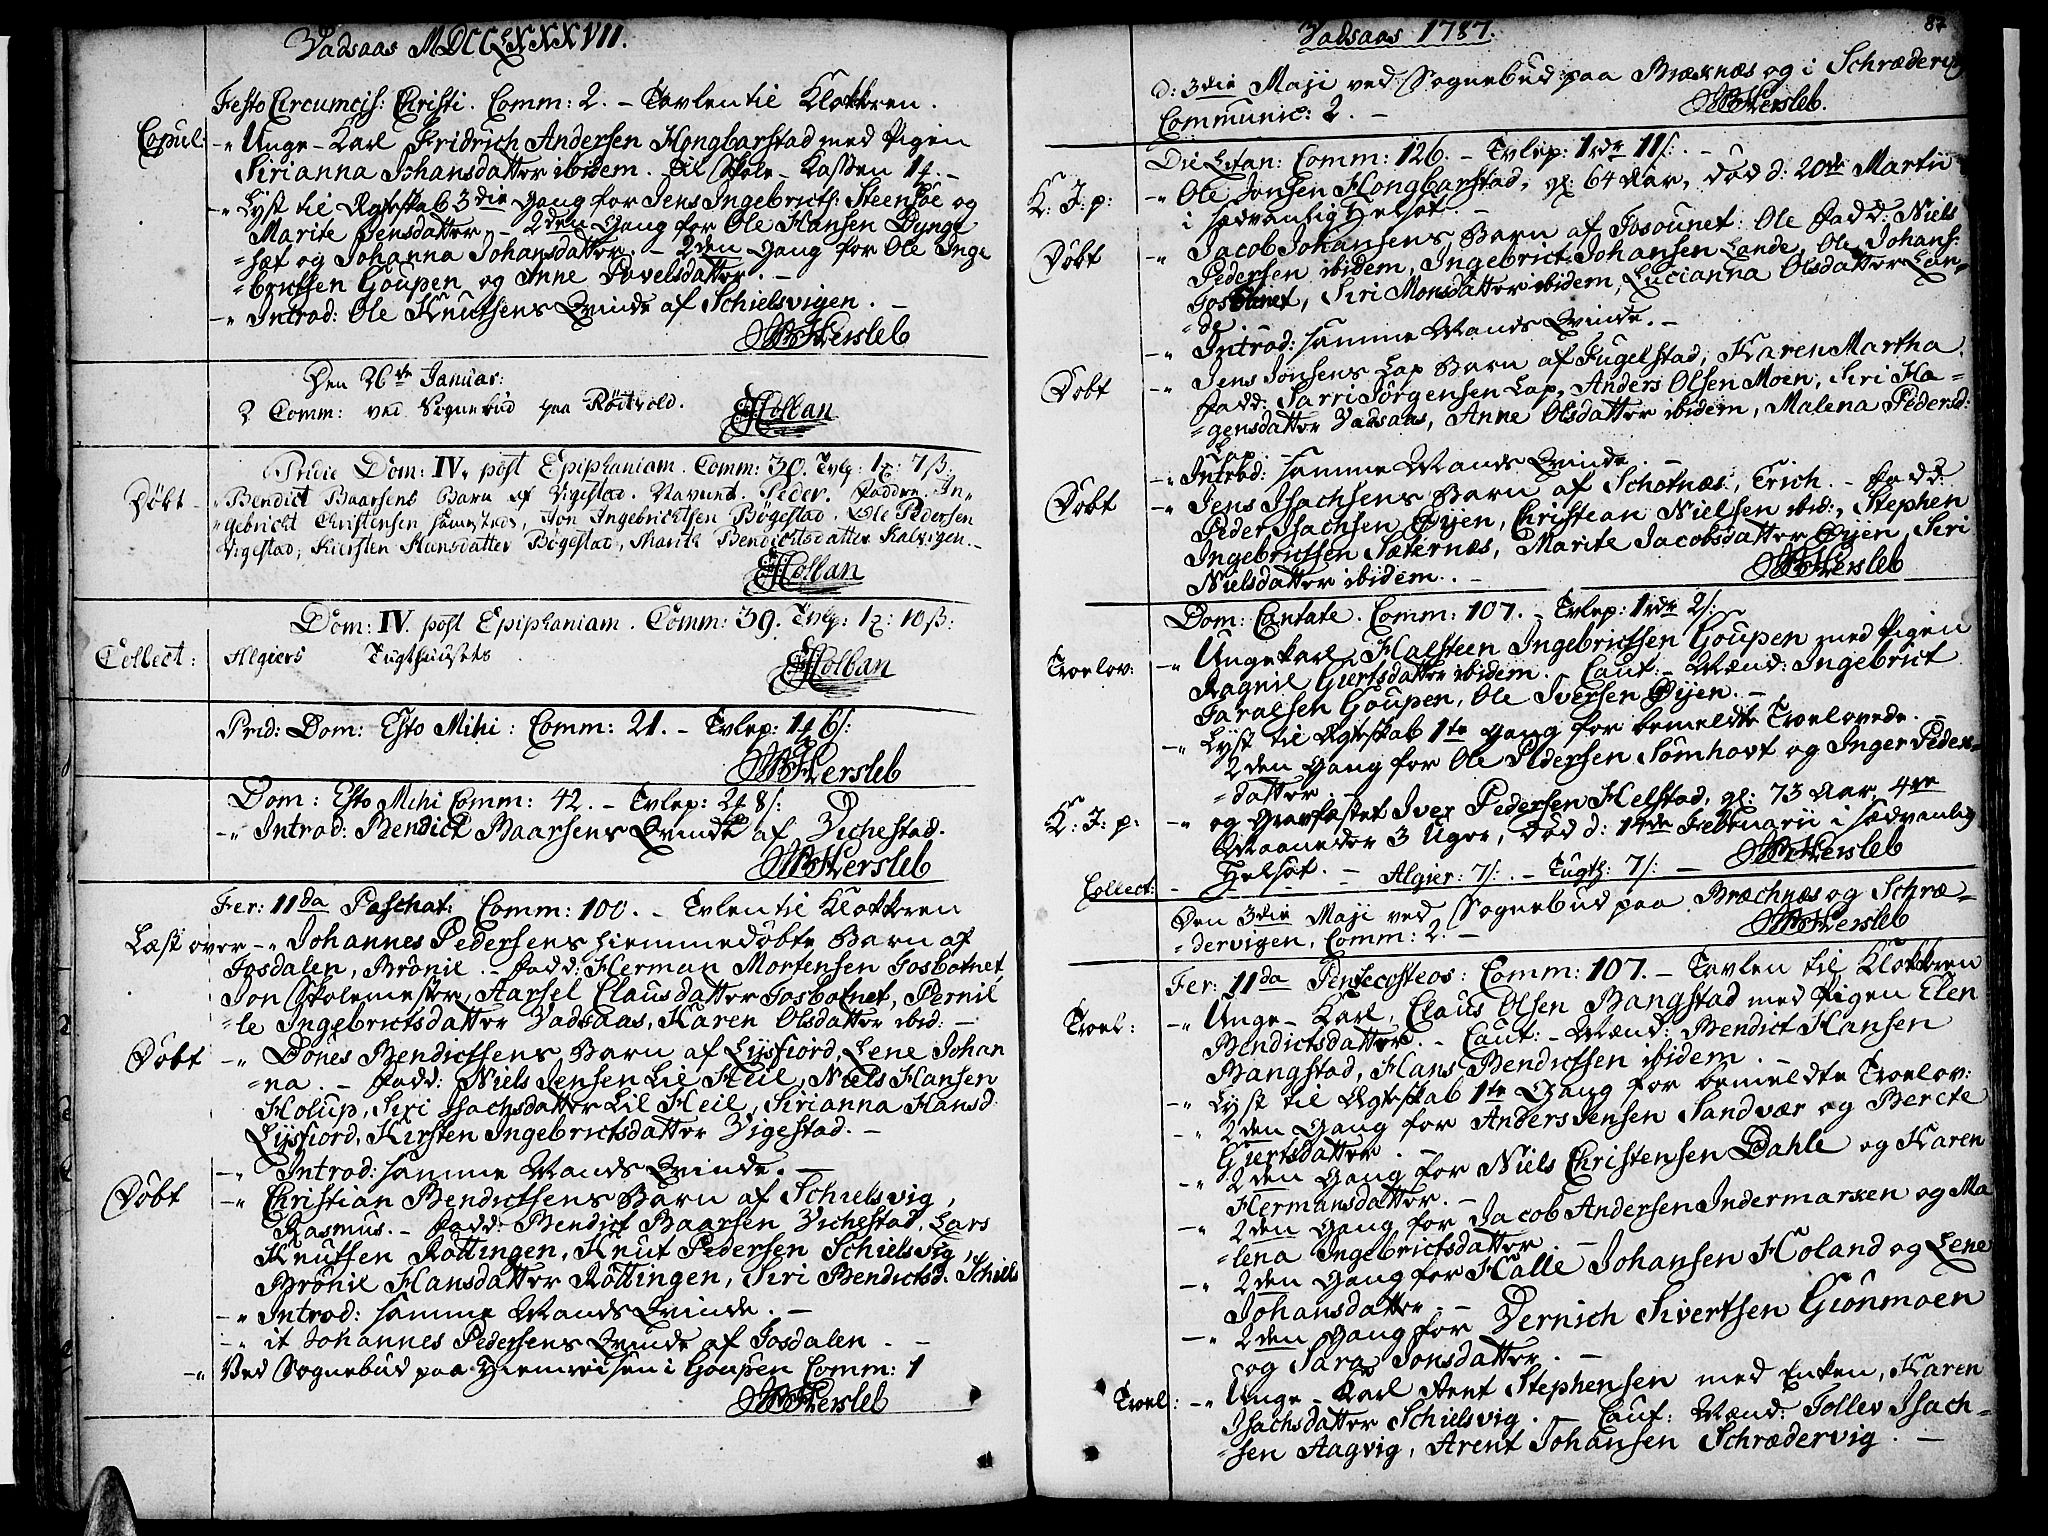 Vadsaas MDCCLXXXVII.
Festo Circumcis: Christi. Comm: 2. - Tavlen til Klokkren.
Copul: -" Unge-Karl Fridrich Andersen Hongbarstad med Pigen
Sirianna Johansdatter ibidem. til Skole-Kassen 1
-" Lyst til Ægteskab 3die Gang for Jens Ingebricts: Steensöe og
Marite Jensdatter, - 2den Gang for Ole Hansen Dynge
=set og Johanna Johansdatter. - 2den Gang for Ole Inge
=brictsen Goupen og Anne Povelsdatter. -
-" Introd: Ole Knutsens Qvinde af Schielsvigen. -
Hersleb
Den 26de Januar:
2 Comm: ved Sognebud paa Röitvold.
Holban
Pridie Dom: IV. post Epiphaniam. Comm: 30. Tvlp: 7 ß:
Döbt - Bendict Baarsens Barn af Vigestad. Navnl. Peder. Faddre. In=
=gebricht Christensen samesteds, Jon Ingebrichtsen Bögestad. Ole Pedersen
Vigestad; Kiersten Hansdatter Bögestad, Marit Bendichtsdatter Kalvigen. -
Holban
Dom: IV. post Epiphaniam. Comm: 39. Tvlp: 10 ß:
Collect: Algiers Tugthusets
Holban
Prid: Dom: Esto Mihi: Comm: 21. - Tvlep: 6 /:
Hersleb
Dom: Esto Mihi Comm: 42. - Tvlep: 8 /:
-" Introd: Bendict Baarsens Qvinde af Vichestad.
Hersleb
Fer: 11da Paschat: Comm: 100. - Tvlen til Klokkren
Læst over -" Johannes Pedersens hiemmedöbte Barn af
Josdalen, Brönil. - Fadd: Herman Mortensen Josbotnet,
Jon Skolemester, Aarsel Clausdatter Josbotnet, Pernil
=le Ingebrictsdatter Vadsaas, Karen Olsdatter ibid: -
Döbt -" Dönes Bendictsens Barn af Lysfiord, Lene Johan
=na. - Fadd: Niels Jensen Lil Heil, Niels Hansen
Holup, Siri Isachsdatter Lil Heil, Sirianna Hansd.
Lysfiord, Kirsten Ingebrictsdatter Vigestad. -
-" Introd: samme Mands Qvinde. -
Döbt -" Christian Bendictsens Barn af Schielsvig,
Rasmus. - Fadd: Bendict Baarsen Vichestad, Lars
Knutsen Röttingen, Knut Pedersen Schielsvig,
Brönil Hansdatter Röttingen, Siri Bendictsd: Schiels
-" Introd: samme Mands Qvinde. -
-" it Johannes Pedersens Qvinde af Josdalen. -
-" Ved Sognebud paa Hiemreisen i Goupen Comm: 1
Hersleb
Vadsaas 1787.
87
d: 3die Maji ved Sognebud paa Bræknæs og i Schrædervig
Communic: 2. -
Hersleb.
Die Litan: Comm: 126. - Tvlep: 1rdr 11/: -
K: J: p: -" Ole Jonsen Hongbarstad, gl: 64 Aar, död d: 20de Martii
i sædvanlig Helsot. -
Döbt -" Jacob Johansens Barn af Josbunet: Ole Fadd: Niels
Pedersen ibidem, Ingebrict Johansen Lande, Ole Johans:
Josbunet, Siri Monsdatter ibidem, Lucianna Olsdatter Lan=
=de.
-" Introd: samme Mands Qvinde. -
Döbt -" Jens Jonsens Lap Barn af Fugelstad, Karen Martha.
Fadd: Sarri Jörgensen Lap, Anders Olsen Moen, Siri Ha=
=gensdatter Vadsaas, Anne Olsdatter ibidem, Malena Pedersd:
Lap. -
-" Introd: samme Mands Qvinde. -
Döbt -" Jens Isachsens Barn af Schotnæs, Erich. - Fadd:
Peder Isachsen Öijen, Christian Nielsen ibid:, Stephen
Ingebrictsen Sæternæs, Marite Jacobsdatter Öijen, Siri
Nielsdatter ibidem. -
Hersleb
Dom: Cantate. Comm: 107. - Tvlep: 1rdr 2/:
Troelov: -" Ungekarl Halsteen Ingebrictsen Goupen med Pigen
Ragnil Giertsdatter ibidem. Caut: - Mænd: Ingebrict
Faralsen Goupen, Ole Iversen Öijen. -
-" Lyst til Ægteskab 1te Gang for bemeldte Troelovede. -
2den Gang for Ole Pedersen Sömhovt og Inger Peders=
=datter. -
K: J: p: -" og Gravfæstet Iver Pedersen Helstad, gl: 73 Aar, 4re
Maaneder 3 Uger, död d: 14de Februarii i sædvanlig
Helsot. -
Hersleb
Collect: - Algier: 7/: - Tugth: 7/: -
Den 3die Maji ved Sognebud paa Bræchnæs og Schræ=
=dervigen, Comm: 2. -
Hersleb
Fer: 11da Pentecosteos: Comm: 107. - Tavlen til Klokkren
Troel: -" Unge-Karl, Claus Olsen Bangstad med Pigen Elen
Bendictsdatter. - Caut: - Mænd: Bendict Hansen
Bangstad, Hans Bendictsen ibidem. -
-" Lyst til Ægteskab 1te Gang for bemeldte Troelov:
-" 2den Gang for Anders Jensen Sandvær og Berete
Giertsdatter. -
-" 2den Gang for Niels Christensen Dahle og Karen
Hermansdatter. -
-" 2den Gang for Jacob Andersen Indermarken og Ma
=lena Ingebrictsdatter. -
-" 2den Gang for Halle Johansen Holand og Lene
Johansdatter. -
-" 2den Gang for Dernich Sivertsen Giönmoen
og Sara Jonsdatter. -
Troel: -" Unge-Karl Arnt Stephensen med Enken, Karen
Isachsdatter Schielsvig. - Caut: Mænd: Tollev Isach=
=sen Aagvig, Arent Johansen Schrædervig. -